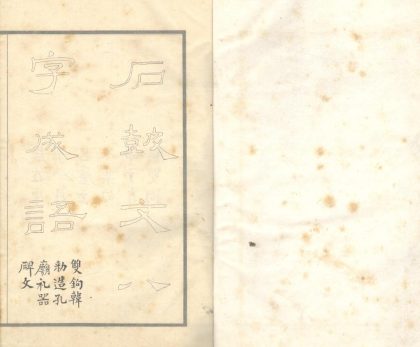 石鼓文八
字成語
雙鉤韓
勑造孔
廟礼器
碑文